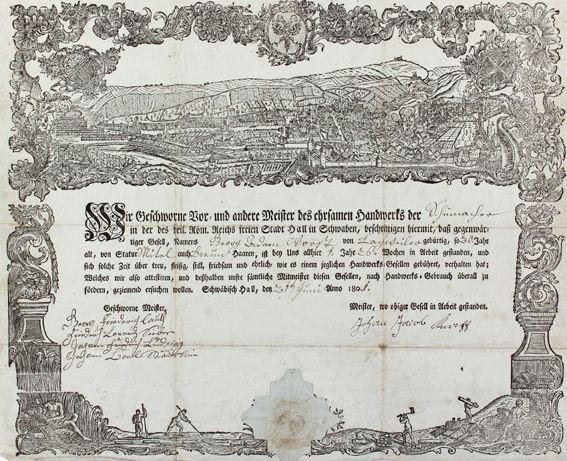 Wir Geschworne Vor- und andere Meister des ehrsamen Handwerks der Schumacher
in der des heil. Röm. Reichs freien Stadt Hall in Schwaben, bescheinigen hiermit, daß gegenwär-
tiger Gesell, Namens Georg Adam von gebürtig, so 30 Jahr
alt, von Statur Mitel auch braun Haaren, ist bey Uns allhier Jahr Wochen in Arbeit gestanden, und
sich solche Zeit über treu, fleißig, still, friedsam und ehrlich, wie es einem jeglichen Handwerks-Gesellen gebühret, verhalten hat;
Welches wir also attestiren, und deßhalben unsre sämtliche Mitmeister diesen Gesellen, nach Handwerks-Gebrauch überall zu
fördern, geziemend ersuchen wollen. Schwäbisch Hall, den Juni Anno 1801
Geschworne Meister,
Meister, wo obiger Gesell in Arbeit gestanden.
Georg Friederich
Johan Jacob